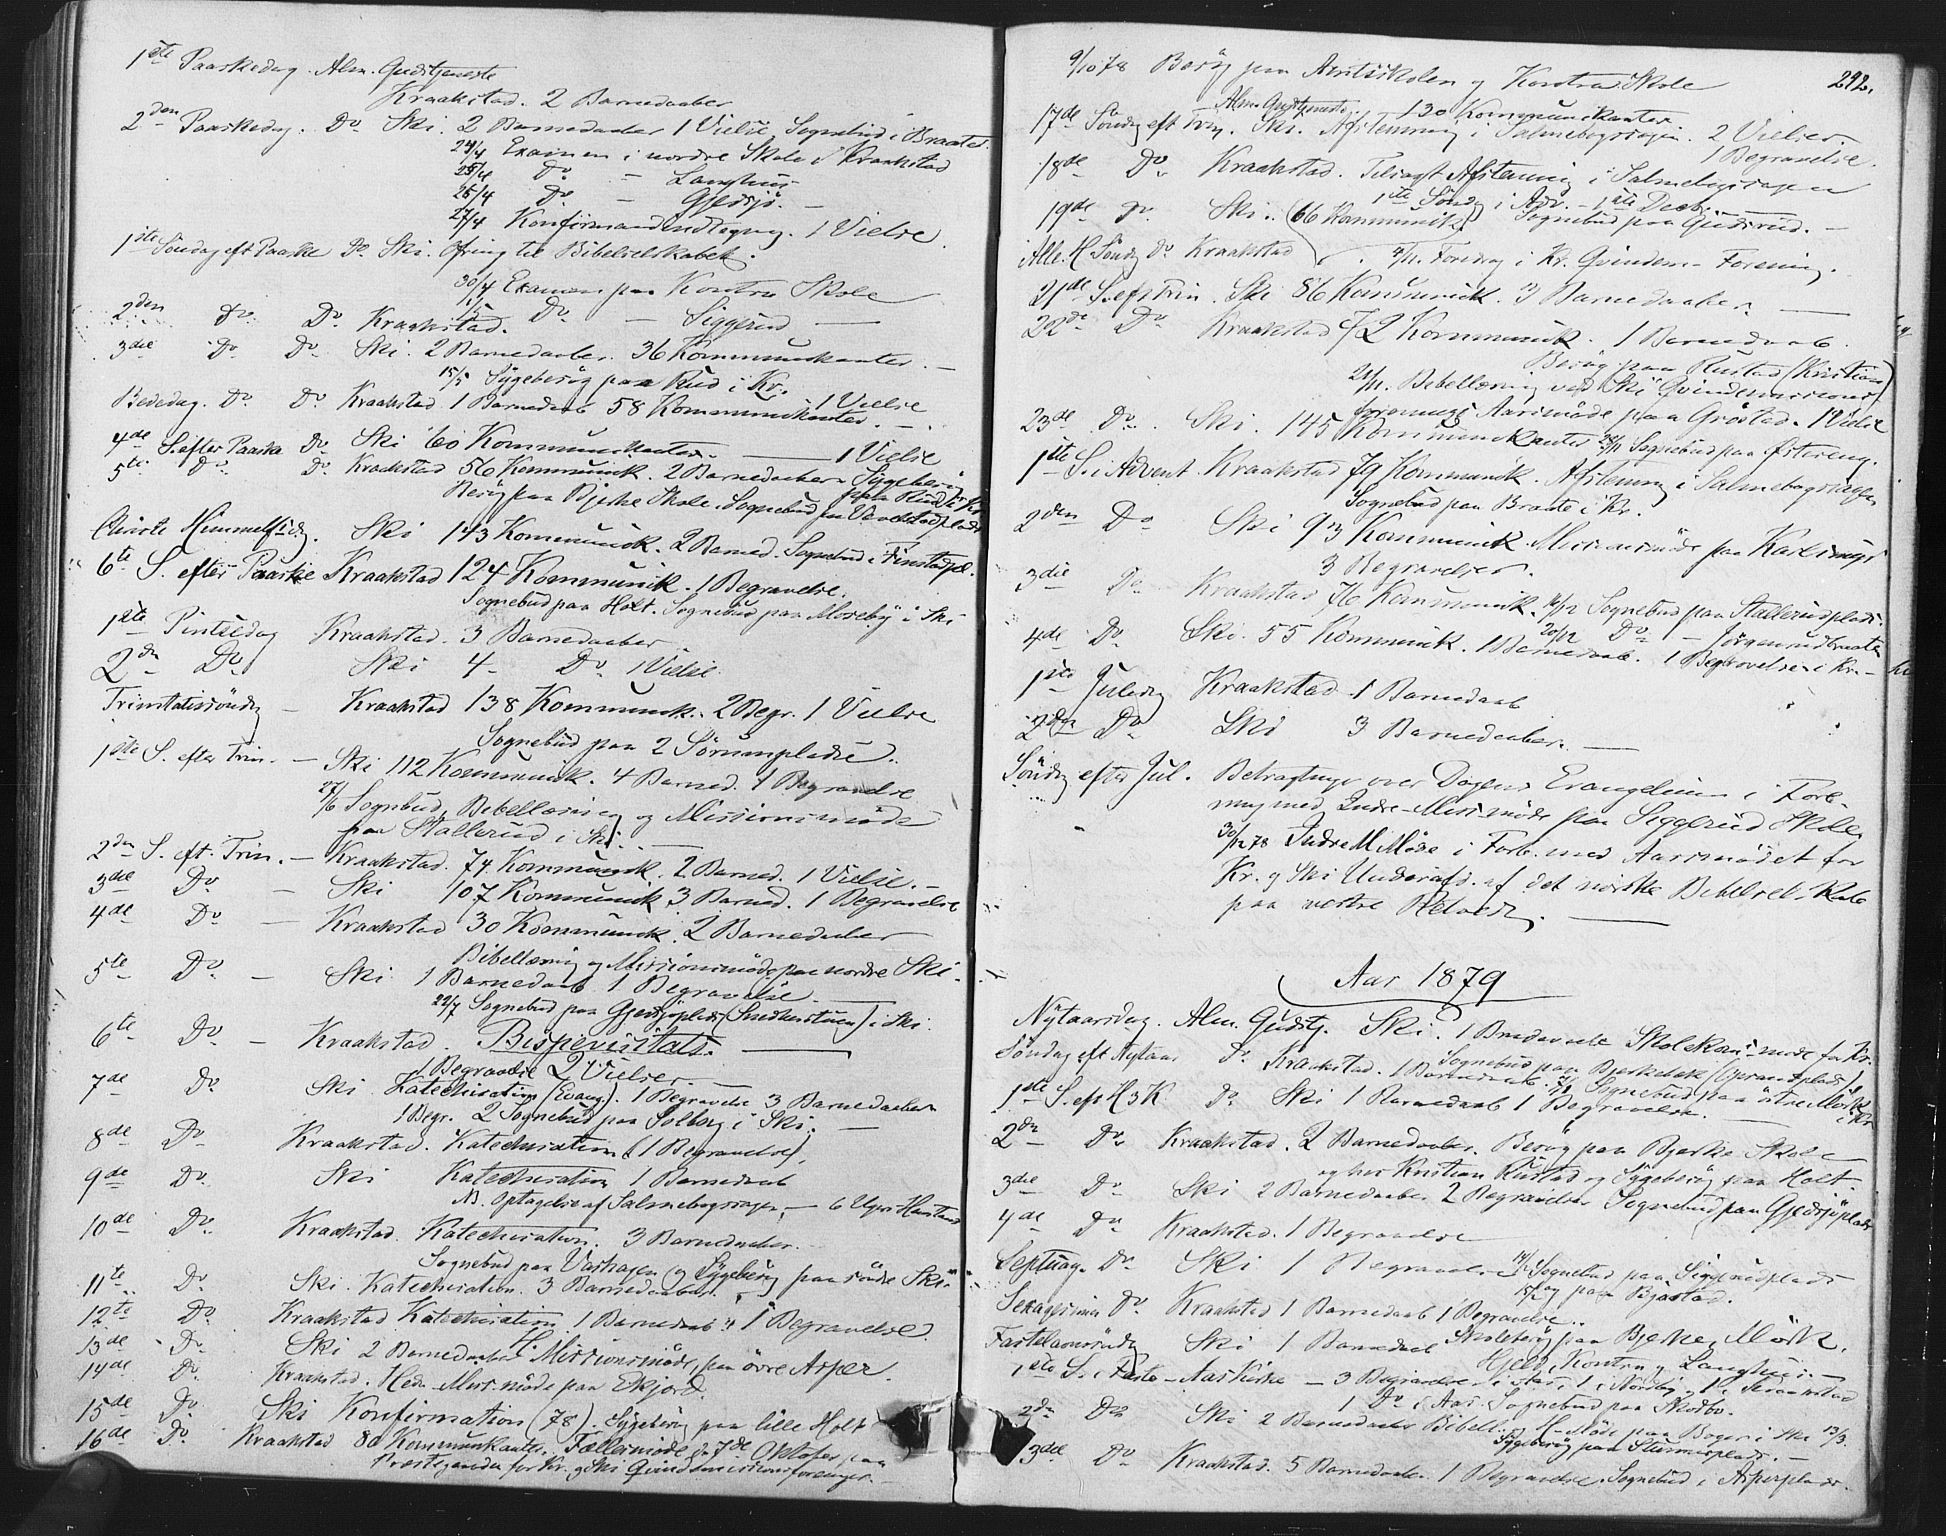 1ste Paaskedag. Alm. Gudstjeneste
Kraakstad. 2 Barnedaaber
2den Paaskedag. Do Ski. 2 Barnedaaber 1 Vielse, Sognebud i Braaten
24/4 Examen i nordre Skole i Kraakstad
25/4 Do — Langhus
26/4 Do — Gjedsjø. —
27/4 Konfirmandindtagning. 1 Vielse.
1ste Søndag eft Paaske Do Ski. Ofring til Bibelselskabet.
30/4 Examen paa Kontra Skole
1/5 Do — Siggerud —
2den Do Do Kraakstad.
3die Do Do Ski. 2 Barnedaaber. 36 Kommunikanter. —
15/5 Sygebesøg paa Rud i Kr.
Bededag. Do Do Kraakstad 1 Barnedaab 58 Kommunikanter. 1 Vielse
4de S. efter Paaske Do Ski 60 Kommunikanter. — 1 Vielse
5te Do Do Kraakstad 56 Kommunik. 2 Barnedaaber Sygebesøg paa Rud i Kr
Besøg paa Bjerke Skole. Sognebud paa Vevelstadplads
Christi Himmelfdg. Ski 143 Kommunik. 2 Barned. Sognebud i Finstadpl.
6te S. efter Paaske Kraakstad 124 Kommunik. 1 Begravelse.
Sognebud paa Holt. Sognebud paa Moseby i Ski
1ste Pintsedag Kraakstad. 3 Barnedaaber
2den Do Ski 4 — Do 1 Vielse.
Trinitatissøndag — Kraakstad 138 Kommunik. 2 Begr. 1 Vielse
Sognebud paa 2 Sørumpladse.
1ste S. efter Trin. — Ski 112 Kommunik. 4 Barned. 1 Begravelse
27/6 Sognebud, Bibellæsning og Missionsmøde
paa Stallerud i Ski. —
2den S. eft. Trin. — Kraakstad. 74 Kommunik. 2 Barned. 1 Vielse. —
3die Do — Ski 107 Kommunik 3 Barned. 1 Begravelse
4de Do — Kraakstad 30 Kommunik. 2 Barnedaaber
Bibellæsning og Missionsmøde paa nordre Ski.
5te Do — Ski 1 Barnedaab 1 Begravelse —
22/7 Sognebud paa Gjedsjøplads (Smedkerstuen) i Ski.
6te Do — Kraakstad. Bispevisitats. —
1 Begravelse 2 Vielser —
7de Do Ski Katechisation (Evang). 1 Begravelse 3 Barnedaaber
1 Begr. 2 Sognebud paa Solberg i Ski. —
8de Do Kraakstad. Katechisation (1 Begravelse).
9de Do Ski Katechisation 1 Barnedaab
NB. Optagelse af Salmebogssagen. —
10de Do Kraakstad. Katechisation. 3 Barnedaaber.
Sognebud paa Vashagen og Sygebesøg paa søndre Ski.
11te Do Ski. Katechisation. 3 Barnedaaber.
12te Do Kraakstad Katechisation 1 Barnedaab 1 Begravelse.
13de Do Ski 2 Barnedaaber H. Missionsmøde paa øvre Asper.
14de Do Kraakstad. Hedn. Miss. møde paa Ekjord.
15de Do Ski Konfirmation (78). Sygebesøg paa lille Holt
16de Do Kraakstad 80 Kommunikanter. Fællesmøde d. 7de Oktober paa
Præstegaarden for Kr. og Ski Qvindemissionsforeninger. —
292.
9/10 78 Besøg paa Amtsskolen og Kontra Skole
17de Søndag eft Trin. Alm. Gudstjeneste Ski. Afstemning i Salmebogssagen. 130 Kommunikanter 2 Vielser. 1 Begravelse.
18de Do Kraakstad. Tilsagt Afstemning i Salmebogssagen
1ste Søndag i Adv. — 1ste Decb.
19de Do Ski. (66 Kommunik.) Sognebud paa Gudsrud. —
Alle. H. Søndag Do Kraakstad. Foredrag i Kr. Qvindem. Forening.
21de S. eft Trin. Ski 86 Kommunik. 3 Barnedaaber. —
22de Do Kraakstad 72 Kommunik. 1 Barnedaab.
Besøg paa Rustad (Kristian)
21/11. Bibellæsning ved Ski Qvindemissions
forenings Aarsmøde paa Grøstad. 1 Vielse
23de Do Ski. 145 Kommunikanter 28/11 Sognebud paa Østereng.
1ste S. i Advent. Kraakstad 79 Kommunik. Afstemning i Salmebogssagen
Sognebud paa Braate i Kr.
2den Do Ski 93 Kommunik. Missionsmøde paa
3 Begravelser.
3die Do Kraakstad 76 Kommunik. Sognebud paa Stallerudplads.
4de Do Ski. 55 Kommunik. 1 Barnedaab. 20/12 Do — Jørgensrudbraaten
1 Begravelse i Kr. —
1ste Juledag Kraakstad 1 Barnedaab
2den Do Ski 3 Barnedaaber. —
Søndag efter Jul. Betragtninger over Dagens Evangelium i Forb.
med Indre-Missmøde paa Siggerud Skole.
30/12 78 Indre M Møde i Forb. med Aarsmødet for
Kr. og Ski Underafd. af det norske Bibelselskab
paa vestre —
Aar 1879
Nytaarsdag. Alm. Gudstj. Ski. 1 Brudevielse Skolekom.møde for Kr.
Søndag eft Nytaar Do Kraakstad. 1 Barnedaab. Sognebud paa
1ste S. eft H3K Do Ski 1 Barnedaab 1 Begravelse. —
2den Do Kraakstad. 2 Barnedaaber. Besøg paa Bjerke Skole
og hos Kristian Rustad og Sygebesøg paa Holt.
3die Do Ski 2 Barnedaaber 2 Begravelser Sognebud paa Gjedsjøplads
4de Do Kraakstad. 1 Begravelse
Septuag. Do Ski 1 Begravelse Sognebud paa Siggerudplads
og paa Bjastad.
Sexagesima Do Kraakstad 1 Barnedaab 1 Begravelse.
Skolebesøg paa Bjerke, Mørk,
Fastelavnssøndag Ski 1 Barnedaab Kontra og Langhus. —
1ste S. i Faste — Aas Kirke — 3 Begravelser i Aas, 1 i Nordby og 1 i Kraakstad
1 Do i Aas. Sognebud paa
2den Do Ski 2 Barnedaaber Bibell. H-Møde paa Boger i Ski 13/3.
Sygebesøg paa —
3die Do Kraakstad. 5 Barnedaaber. 1 Begravelse. Sognebud i Asperplads.